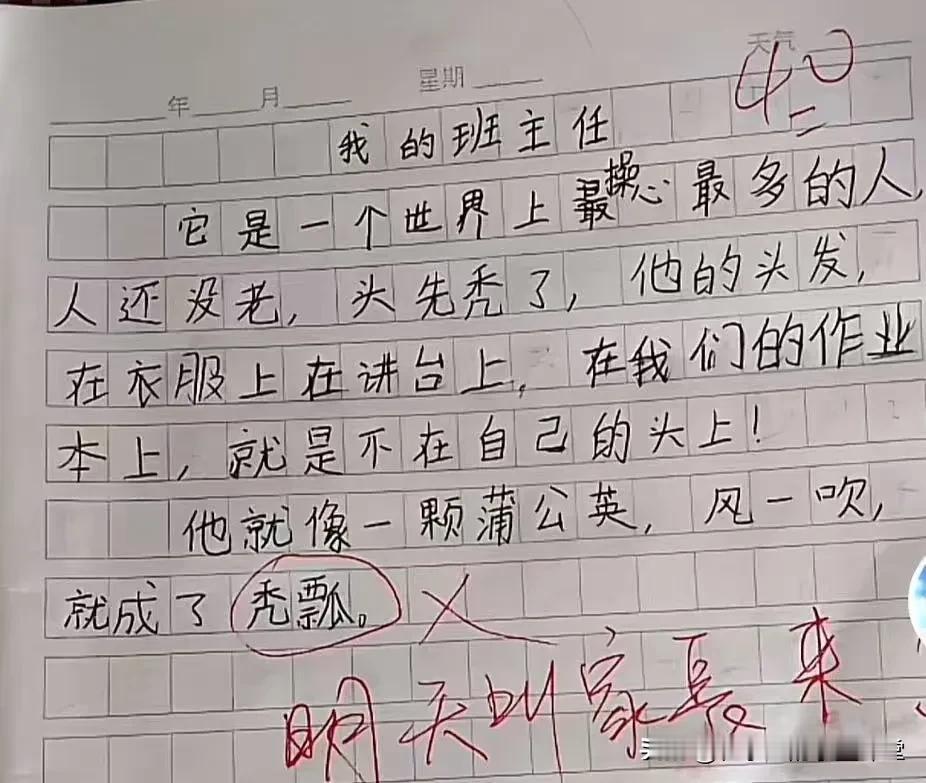 天气
40
年 月 星期
我的班主任
它是一个世界上最操心最多的人,
人还没老,头先秃了,他的头发,
在衣服上在讲台上,在我们的作业
本上,就是不在自己的头上!
他就像一颗蒲公英,风一吹,
就成了秃瓢。
明天叫家长来